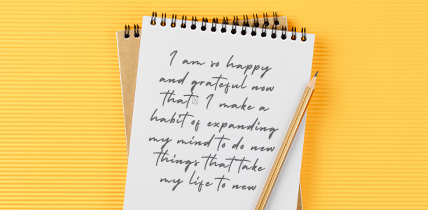 I am so happy
and grateful now
that I make a
habit of expanding
my mind to do new
things that take
my life to new